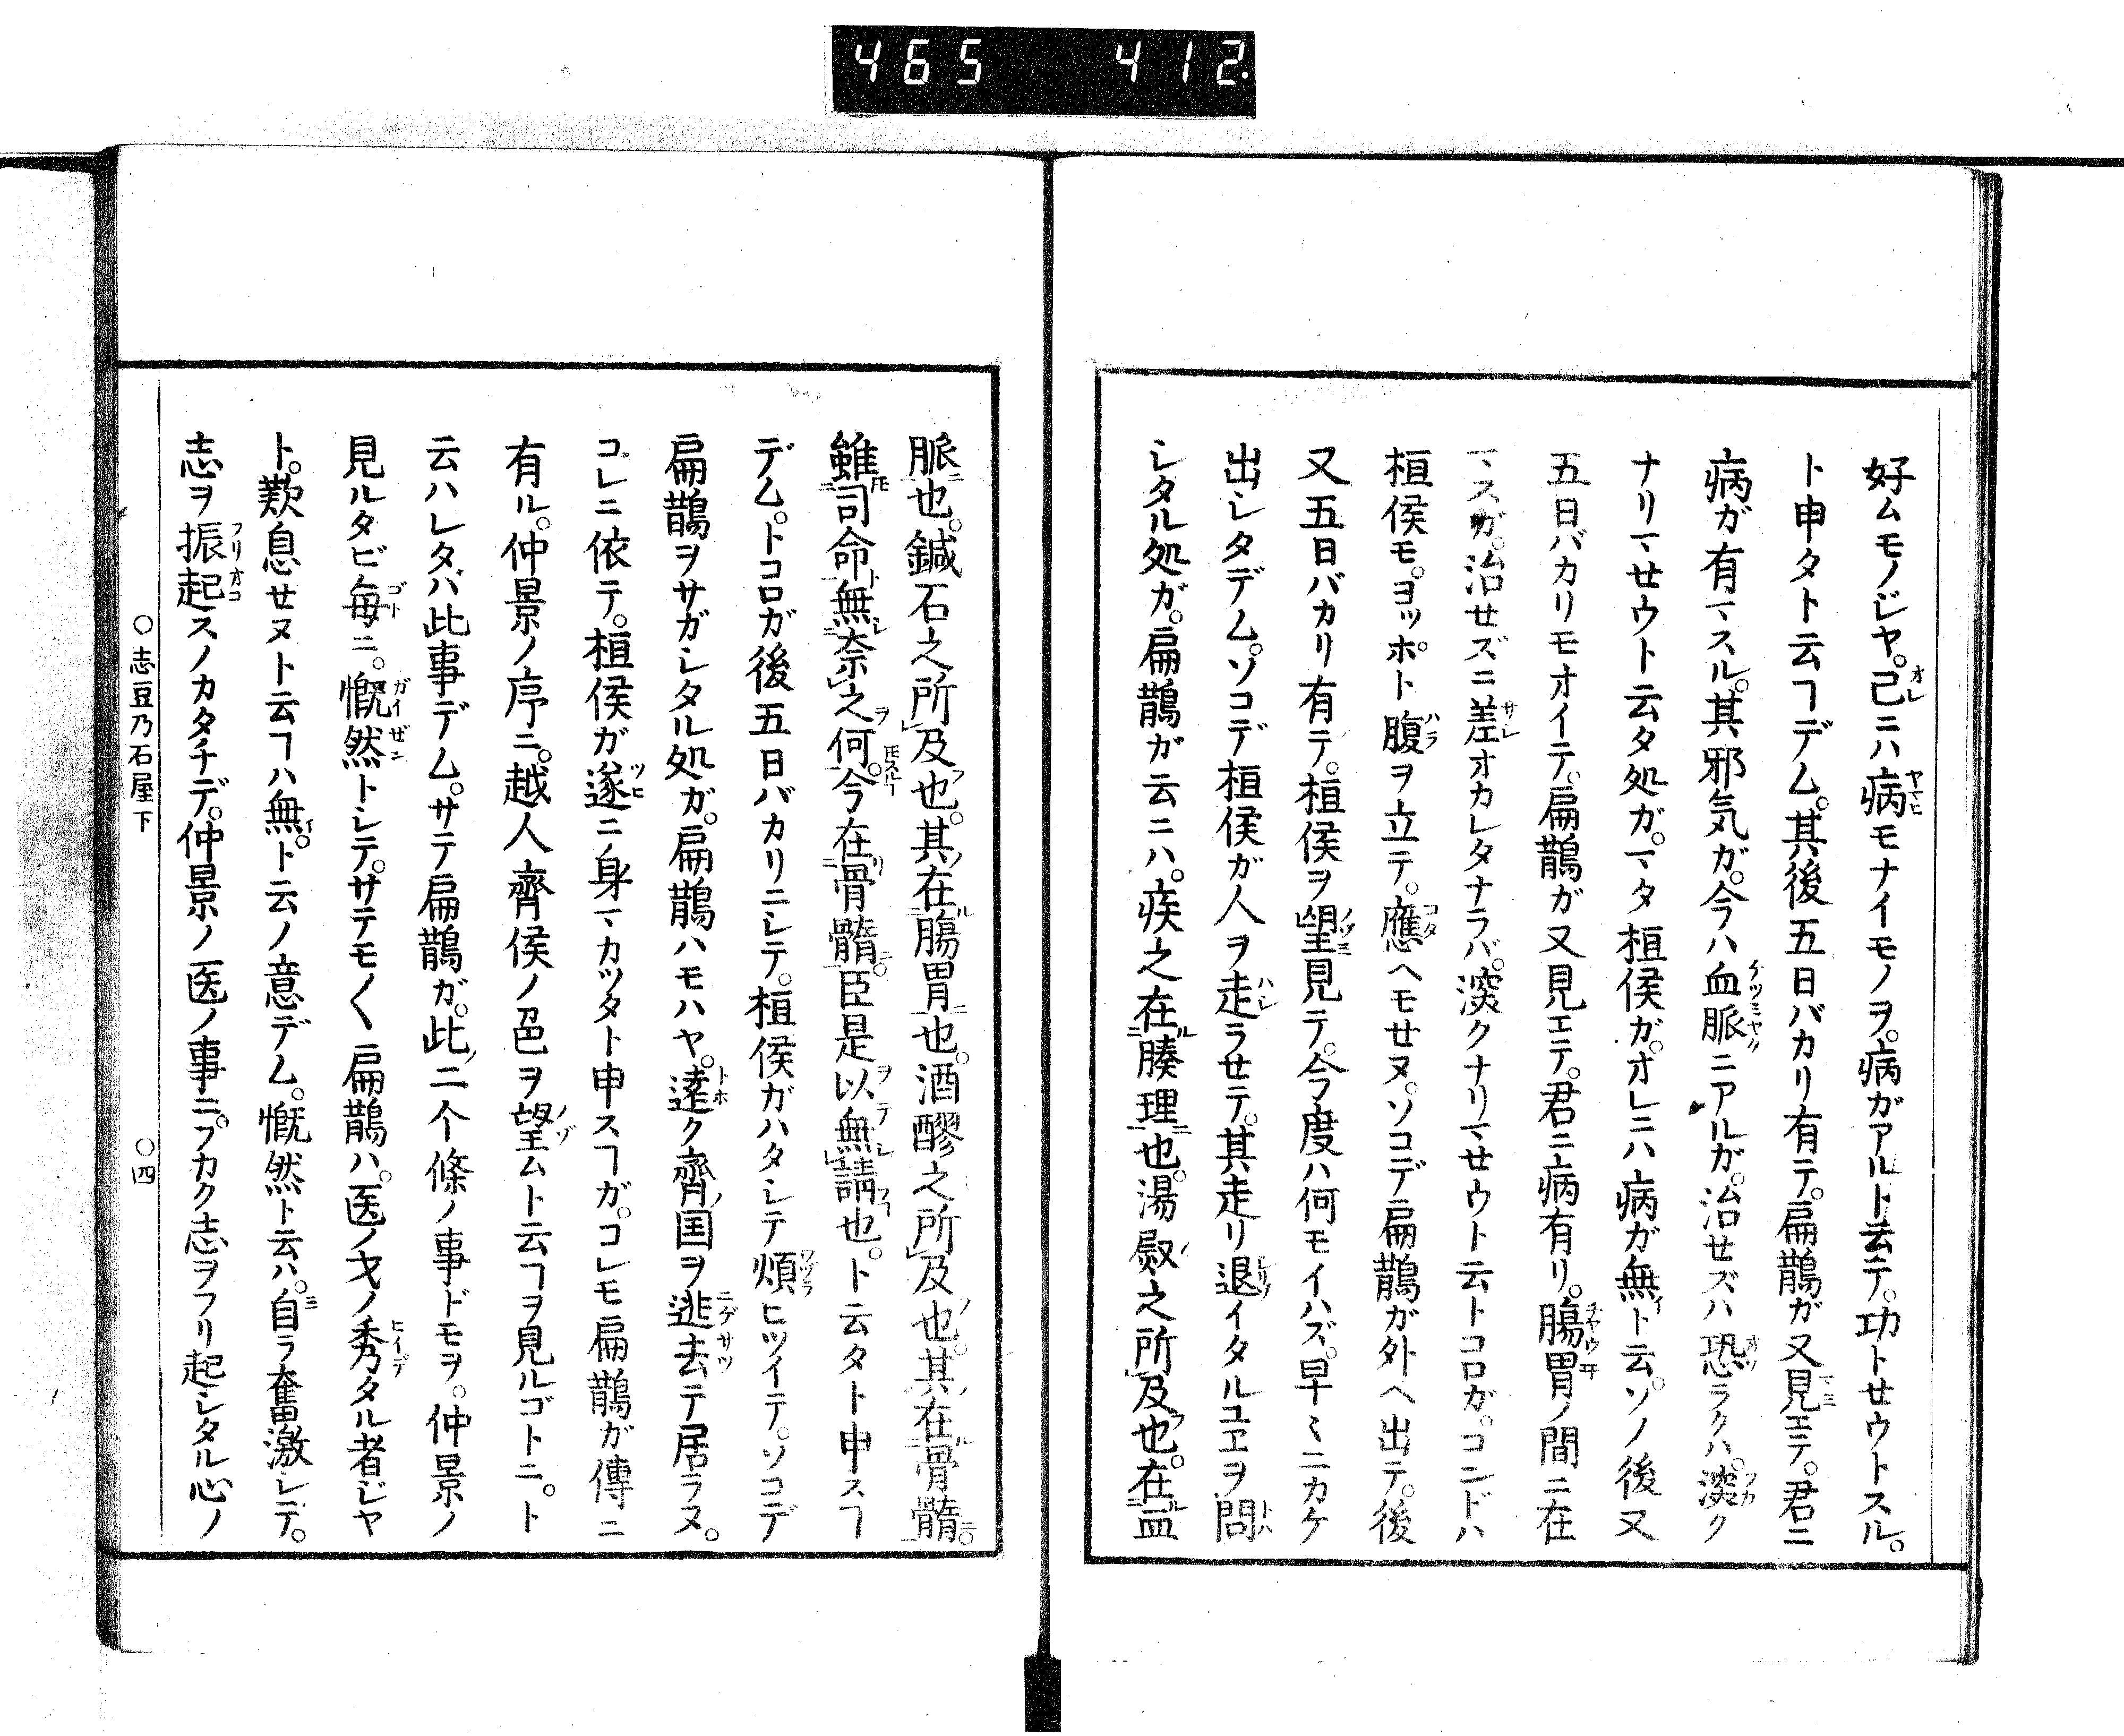 465 412.
好ムモノジヤ。己ニハ病モナイモノヲ。病ガアルト云テ。功トせウトスル。
ト申タト云ヿデム。其後五日バカリ有テ。扁鵲ガ又見エテ。君ニ
病ガ有マスル。其邪気ガ。今ハ血脈ニアルガ。治せズハ恐ラクハ。深ク
ナリマせウト云タ処ガ。マタ桓侯ガ。オレニハ病ガ無ト云。ソノ後又
五日バカリモオイテ。扁鵲ガ又見エテ。君ニ病有リ。腸胃ノ間ニ在
マスガ。治せズニ差オカレタナラバ。深クナリマせウト云トコロガ。コンドハ
桓侯モ。ヨッポト腹ヲ立テ。應ヘモせヌ。ソコデ扁鵲ガ外ヘ出テ。後
又五日バカリ有テ。桓侯ヲ望見テ。今度ハ何モイハズ。早〻ニカケ
出シタデム。ソコデ桓侯ガ人ヲ走ラせテ。其走リ退イタルユヱヲ問
シタル処ガ。扁鵲ガ云ニハ。疾之在腠理也。湯熨之所及也。在血
脈也。鍼石之所及也。其在腸胃也。酒醪之所及也。其在骨髓
雖司命無奈之何。今在骨髓。臣是以無請也。ト云タト申スヿ
デム。トコロガ後五日バカリニシテ。桓侯ガハタシテ煩ヒツイテ。ソコデ
扁鵲ヲサガシタル処ガ。扁鵲ハモハヤ。遠ク齊国ヲ逃去テ居ラヌ。
コレニ依テ。桓侯ガ遂ニ身マカツタト申スヿガ。コレモ扁鵲ガ傳ニ
有ル。仲景ノ序ニ。越人齊侯ノ邑ヲ望ムト云ヿヲ見ルゴトニ。ト
云ハレタハ此事デム。サテ扁鵲ガ。此二个條ノ事ドモヲ。仲景ノ
見ルタビ毎ニ。慨然トシテ。サテモ〱扁鵲ハ。医ノ才ノ秀タル者ジヤ
ト。歎息せヌト云ヿハ無。ト云ノ意デム。慨然ト云ハ。自ラ奮激シテ。
志ヲ振起スノカタチデ。仲景ノ医ノ事ニ。フカク志ヲフリ起シタル心ノ
○志豆乃石屋下 ○四